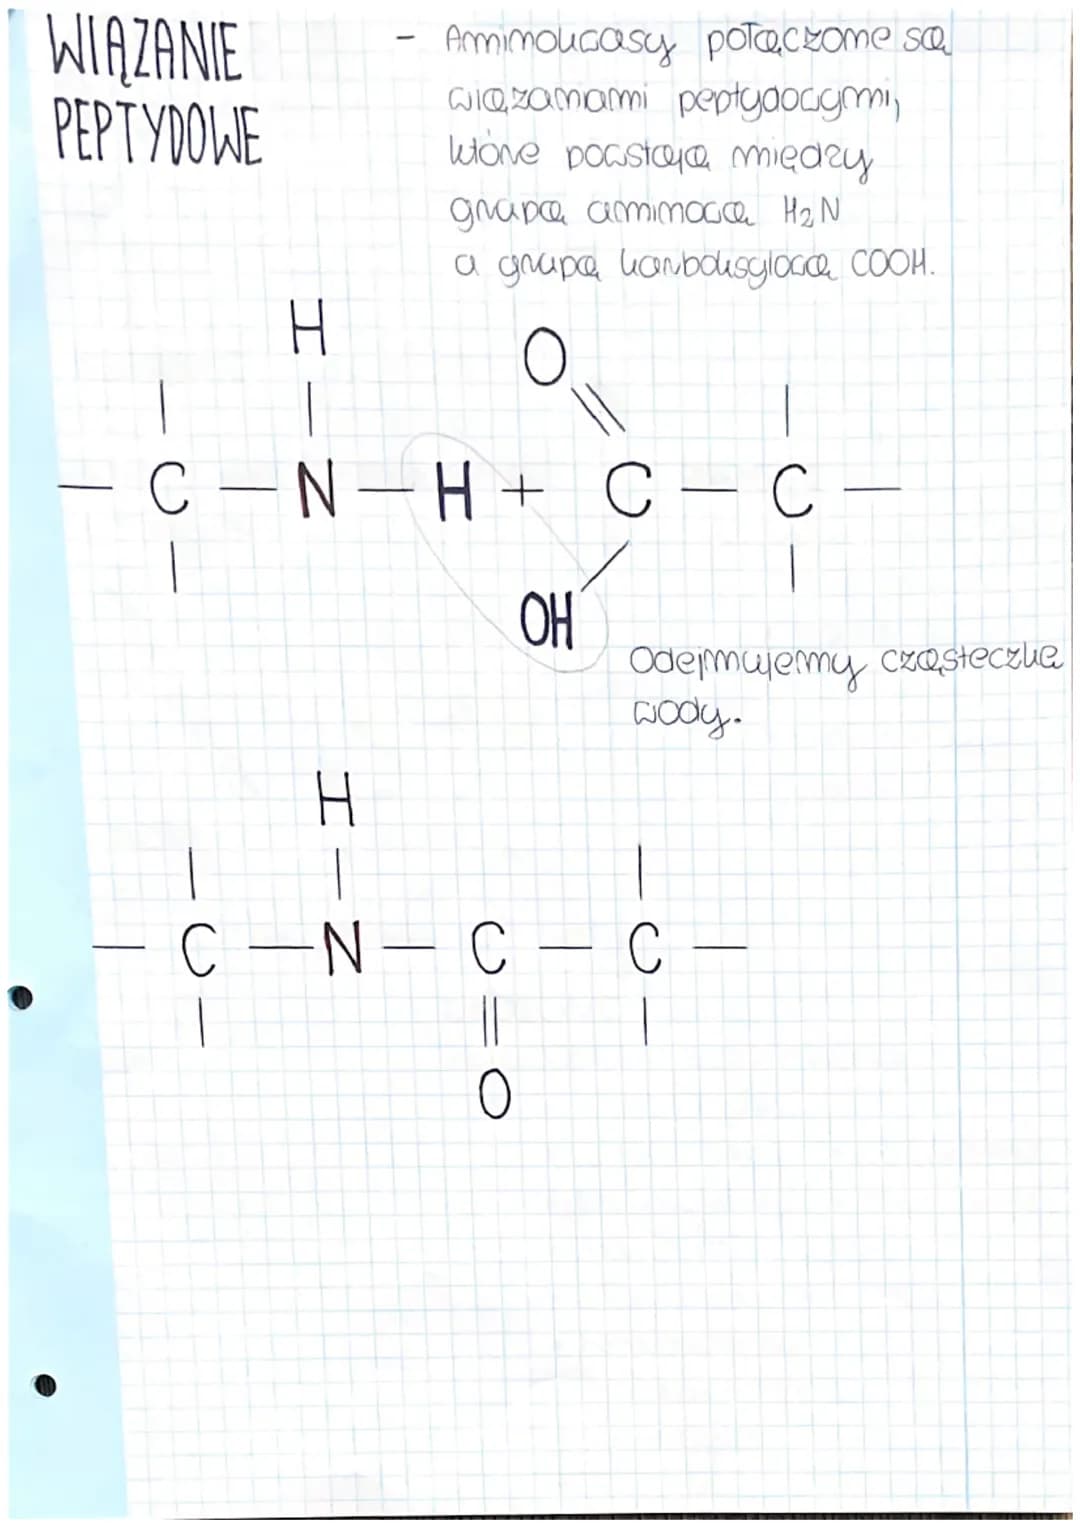 WIĄZANIE
PEPTYDOWE
- Aminokwasy połączone są
wiązaniami peptydowymi,
które powstają między
grupą aminową H2N
a grupą karboksylową COOH.
H
O
C - N - H + C - C
OH
Odejmujemy cząsteczkę
wody.
H
C - N - C - C
O